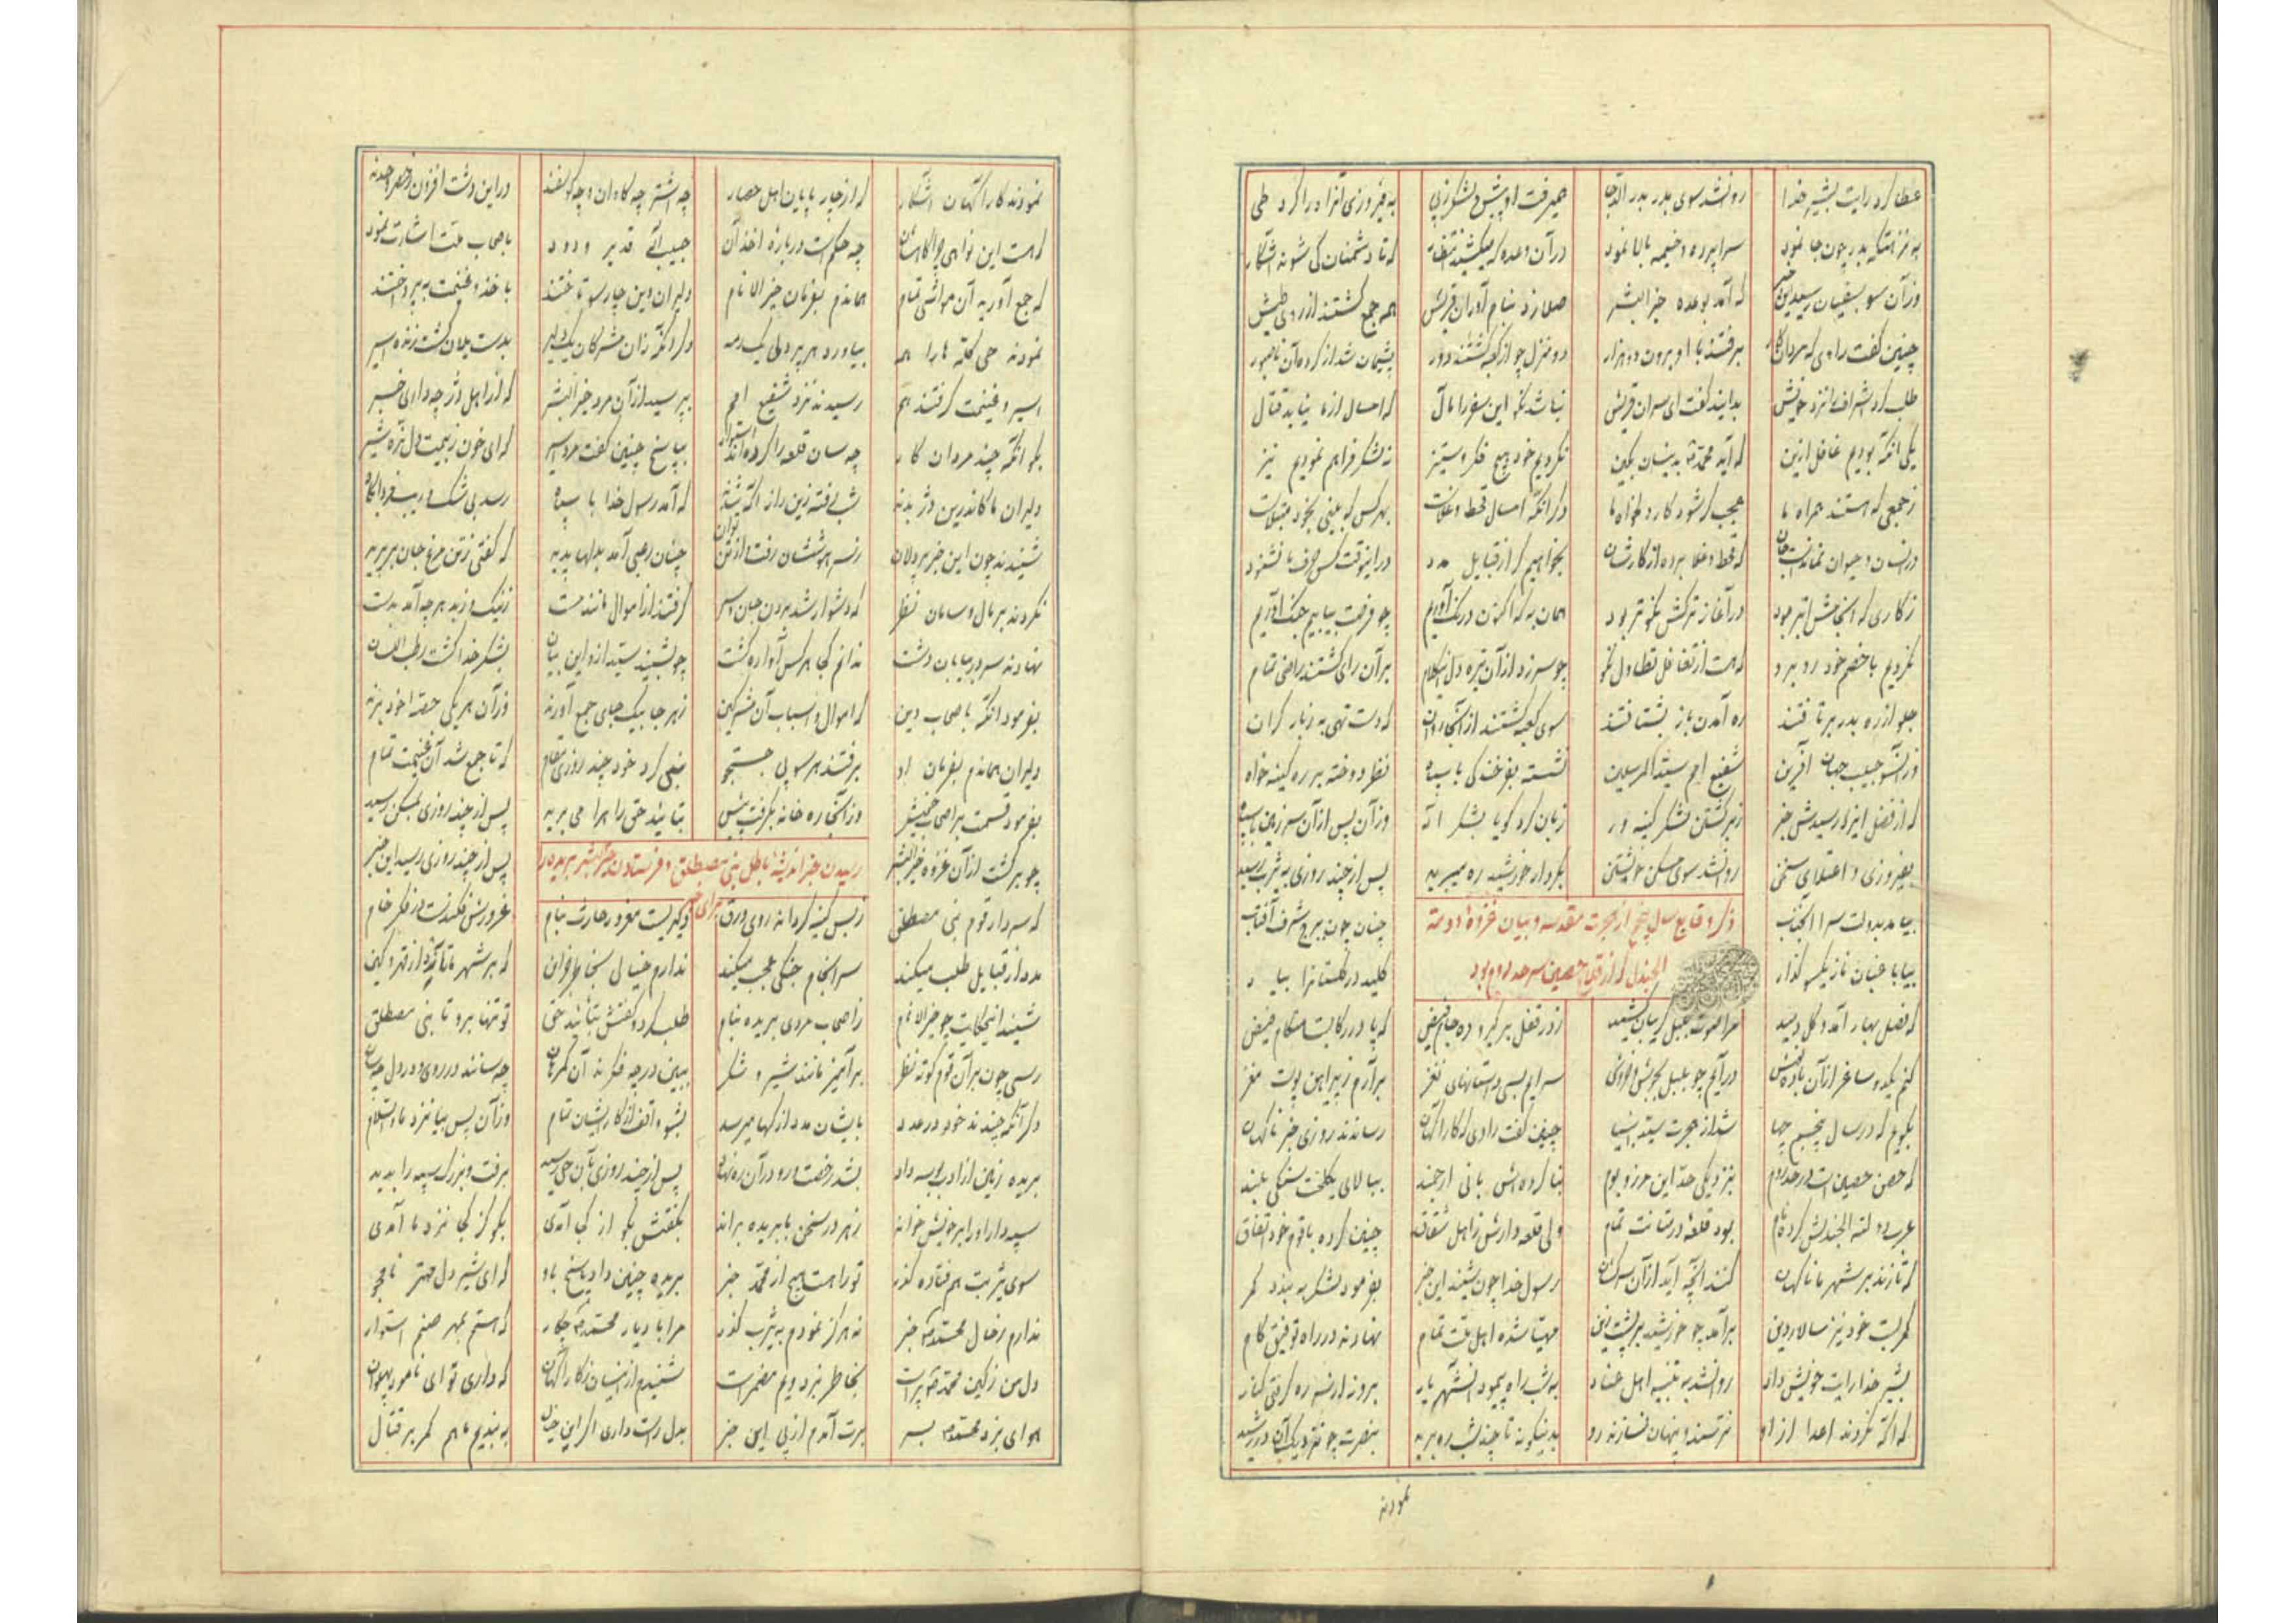 عطا کرد رایت بشیر خدا روان شد سوی بدر بدرالدجا همیرفت او پیش و لشکر ز پی به فیروزی آنراه را کرد طی
به نزهتگه بدر چون جا نمود سراپرده و خیمه بالا نمود در آن وعده که میکشید انتظار که تا دشمنان کی شوند آشکار
وزآن سو بسفیان رسید این خبر که آمد بوعده خیر البشر صلا زد بنام آوران قریش همه جمع گشتند از روی طیش
چنین گفت راوی که مردان برفتند با او برون دو هزار دو منزل چو از کعبه گشتند دور پشیمان شد از کرده آن ناصبور
طلب کرد اشراف را نزد خویش بدایند گفت ای سران قریش نباشد نکو این سفر را مآل که امسال از ما نیاید قتال
یکی آنکه بودیم غافل ازین که آید محمد به ینسان بکین نکردیم خود هیچ فکر ستیز نه لشکر فراهم نمودیم نیز
ز جمعی که هستند همراه ما عجب گر شود کار دلخواه ما دگر آنکه امسال قحط و غلاست بهر کس که بینی بخود مبتلاست
در انسان و حیوان نمانده است جان که قحط و غلا برده از کارشان بخواهیم گر از قبایل مدد در اینوقت کس حرف ما نشنود
ز کاری که انجامش ابتر بود در آغاز ترکش نکوتر بود همان به که اکنون درنگ آوریم چو فرصت بیابیم جنگ آوریم
نکردیم با خصم خود رو برو که هست از تغافل تطاول نکو چو سر زد از آن تیره دل این کلام بر آن رای گشتند راضی تمام
جلو از ره بدر برتافتند ره آمدن باز بشتافتند سوی کعبه گشتند از آنجا روان که دست تهی به ز بار گران
وزآنسو حبیب جهان آفرین شفیع امم سید المرسلین نشسته بفرخندگی با سپاه نظر دوخته بر ره کینه خواه
که از فضل ایزد رسیدش خبر ز برگشتن لشکر کینه ور زبان کرد گویا بشکر اله وزآن پس از آن سرزمین با سپاه
بفیروزی و اعتلای سخن روان شد سوی مسکن خویشتن بکردار خورشید ره میبرید پس از چند روزی به یثرب رسید
بیامد بدولت سرا آنجناب چنان چون ببرج شرف آفتاب
ذکر وقایع سال پنجم از هجرت مقدسه و بیان غزوهٔ دومة
الجندل که از قلاع حصین سرحد روم بود
بیا با عنان نازیکسو گذار کلید در گلستانرا بیار
که فصل بهار آمد و گل دمید مرا صوت بلبل گریبان کشید ز در قفل برگیر و ده جام فیض که پا در رکابست هنگام فیض
کنم یکدو ساغر از آن باده نوش درآیم چو بلبل بجوش و خروش سرایم بسی داستانهای نغز برآرم ز پیراهن پوست مغز
بگویم که در سال پنجم چها شد از هجرت سید انبیا چنین گفت راوی که کارآگهان رساندند روزی خبر ناگهان
که حصن حصین است در حد روم بنزدیکی حد این مرز و بوم بنا کرده اش بانی ارجمند ببالای یکلخت سنگی بلند
عرب دومة الجندلش کرده نام بود قلعهٔ در متانت تمام ولی قلعه دارش ز اهل شقاق چنین کرده با قوم خود اتفاق
که تازند بر شهر ما ناگهان کنند آنچه آید از آن سرکشان رسول خدا چون شنید این خبر بفرمود لشکر به بندد کمر
کمر بست خود نیز سالار دین برآمد چو خورشید بر پشت زین مهیا شده اهل ملت تمام نهادند در راه توفیق گام
بشیر خدا رایت خویش داد روان شد به تنبیه اهل عناد به شب راه پیمود آنشهریار بروز از سر ره گرفتی کنار
که آگه نگردند اعدا از او نترسند و پنهان نسازند رو بدینگونه تا چند شب ره برید بنصرت چو نزدیک آن در رسید
نمودند
نمودند کارآگهان آشکار که از چارپایان اهل حصار چه اشتر چه گاوان و چه گوسفند در این دشت افزون ز حصر و حدند
که هست این نواحی چراگاهشان چه حکم است دربارهٔ اخذ آن حبیب آلهٔ قدیر ودود باصحاب ملت اشارت نمود
که جمع آورید آن مواشی تمام هماندم بفرمان خیر الانام دلیران دین چار سو تاختند باخذ غنیمت بپرداختند
نمودند حی گله ها را همه بیاورد هر پر دلی یک رمه دگر آنکه زان مشرکان یک دلیر بدست یلان گشت زنده اسیر
اسیر و غنیمت گرفتند هم رسیدند نزد شفیع امم بپرسید از آن مرد خیر البشر که از اهل دژ چه داری خبر
بگو آنکه چندند مردان کار چه سان قلعه را کرده اند استوار بپاسخ چنین گفت مرد اسیر که ای خون ز بیمت دل نره شیر
دلیران ما کاندرین دژ بدند شب رفته زین راز آگه شدند که آمد رسول خدا با سپاه رسد بی شک و ریب فردا پگاه
شنیدند چون این خبر پردلان ز سر هوششان رفت و از تن توان چنان رعبی آمد بدلها پدید که گفتی ز تن مرغ جان پرید
نکردند بر مال و سامان نظر که دشوار شد بردن جان و سر گرفتند از اموال مانند دست ز نیک و ز بد هر چه آمد بدست
نهادند سر در بیابان و دشت ندانم کجا هر کس آواره گشت چو بشنید سید ازو این بیان بشکر خدا گشت رطب اللسان
بفرمود آنکه باصحاب دین که اموال و اسباب آن مشرکین ز هر جا بیک جای جمع آورند وزآن هر یکی حصهٔ خود برند
دلیران هماندم بفرمان او برفتند هر سو پی جستجو نبی کرد خود چند روزی مقام که تا جمع شد آن غنیمت تمام
بفرمود قسمت بر اصحاب خویش وز آنجا ره خانه بگرفت پیش بتائید حق راه را می برید پس از چند روزی بمسکن رسید
چو برگشت از آن غزوه خیر البشر پس از چند روزی رسید این خبر
رسیدن خبر اندیشهٔ باطل بنی مصطلق و فرستادن خیر البشر بریده را
برای خبر
که سردار قوم بنی مصطلق ز بس کینه گردانده روی ورق دگر نیست مغرور حارث بنام غرورش فکندست در فکر خام
مدد از قبایل طلب میکند سرانجام جنگی عجب میکند ندارم خیالی بخاطر جز آن که بر شهر ما تازد از قهر و کین
شنید اینحکایت چو خیر الانام ز اصحاب مردی بریده بنام طلب کرد و گفتش بتائید حق تو تنها برو تا بنی مصطلق
رسی چون بر آن قوم کوته نظر برآمیز مانند شیر و شکر ببین در چه فکرند آن گمرهان چه سانند در روی و در دل چه سان
دگر آنکه چندند خود در عدد بایشان مدد از کجا میرسد بشو واقف از کار ایشان تمام وزآن پس بیا نزد ما والسلام
بریده زمین از ادب بوسه داد بشد رخصت و رو در آن ره نهاد پس از چند روزی بآن حی رسید برفت و بزرگ سپه را بدید
سپهدار او را بر خویش خواند ز هر در سخن با بریده براند بگفتش بگو از کی آمدی بگو کز کجا نزد ما آمدی
سوی یثربت هم فتاده گذر تو را هست هیچ از محمد خبر بریده چنین داد پاسخ باو که ای شیر دل مهتر نامجو
ندارم ز حال محمد خبر نه هرگز نمودم به یثرب گذر مرا با دیار محمد چکار که هستم بمهر صنم استوار
دل من ز کین محمد پر است بخاطر نبرد ویم مضمر است شنیدم از انسان ز کارآگهان که داری تو ای نامور پهلوان
هوای نبرد محمد بسر برت آمدم از پی این خبر بدل راست داری اگر این خیال به بندیم ما هم کمر بر قتال